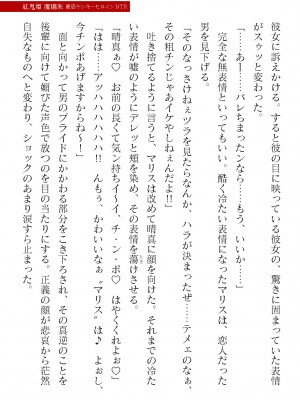 紅鬼姫 瑠璃珠 最強ヤンキーヒロインNTR
彼女に訴えかける。すると彼の目に映っている彼女の、驚きに固まっていた表情
がスゥッと変わった。
「……あー……バレちまったンなら……もう、いいか……」
もう、いいかとはどういう
見下ろす。
「そのなっさけねぇツラを見たらなんか、ハラが決まったぜ……テメェのなぁ、
その粗チンじゃあイケやしねぇんだよ!!」
吐き捨てるように言うと、マリスは改めて晴真に顔を向けた。それまでの冷た
い表情が嘘のようにデレッと頬を染め、その表情を蕩けさせる。
「晴真ぁ♡ お前の長くて気ン持ちイ～イ、チ・ン・ポ♡ はやくくれよぉ♡」
「はは……アッハハハハハ!! んもう、かわいいなぁ〝マリス〟は♪ よぉし、
今チンポあげますからね～!」
面と向かって男のプライドにかかわる部分をこき下ろされ、その真逆のことを
後輩に向けて媚びた声色で放つのを目の当たりにする。正義の顔が悲哀から茫然
としたものへと変わり、ショックのあまり涙すら止まった。